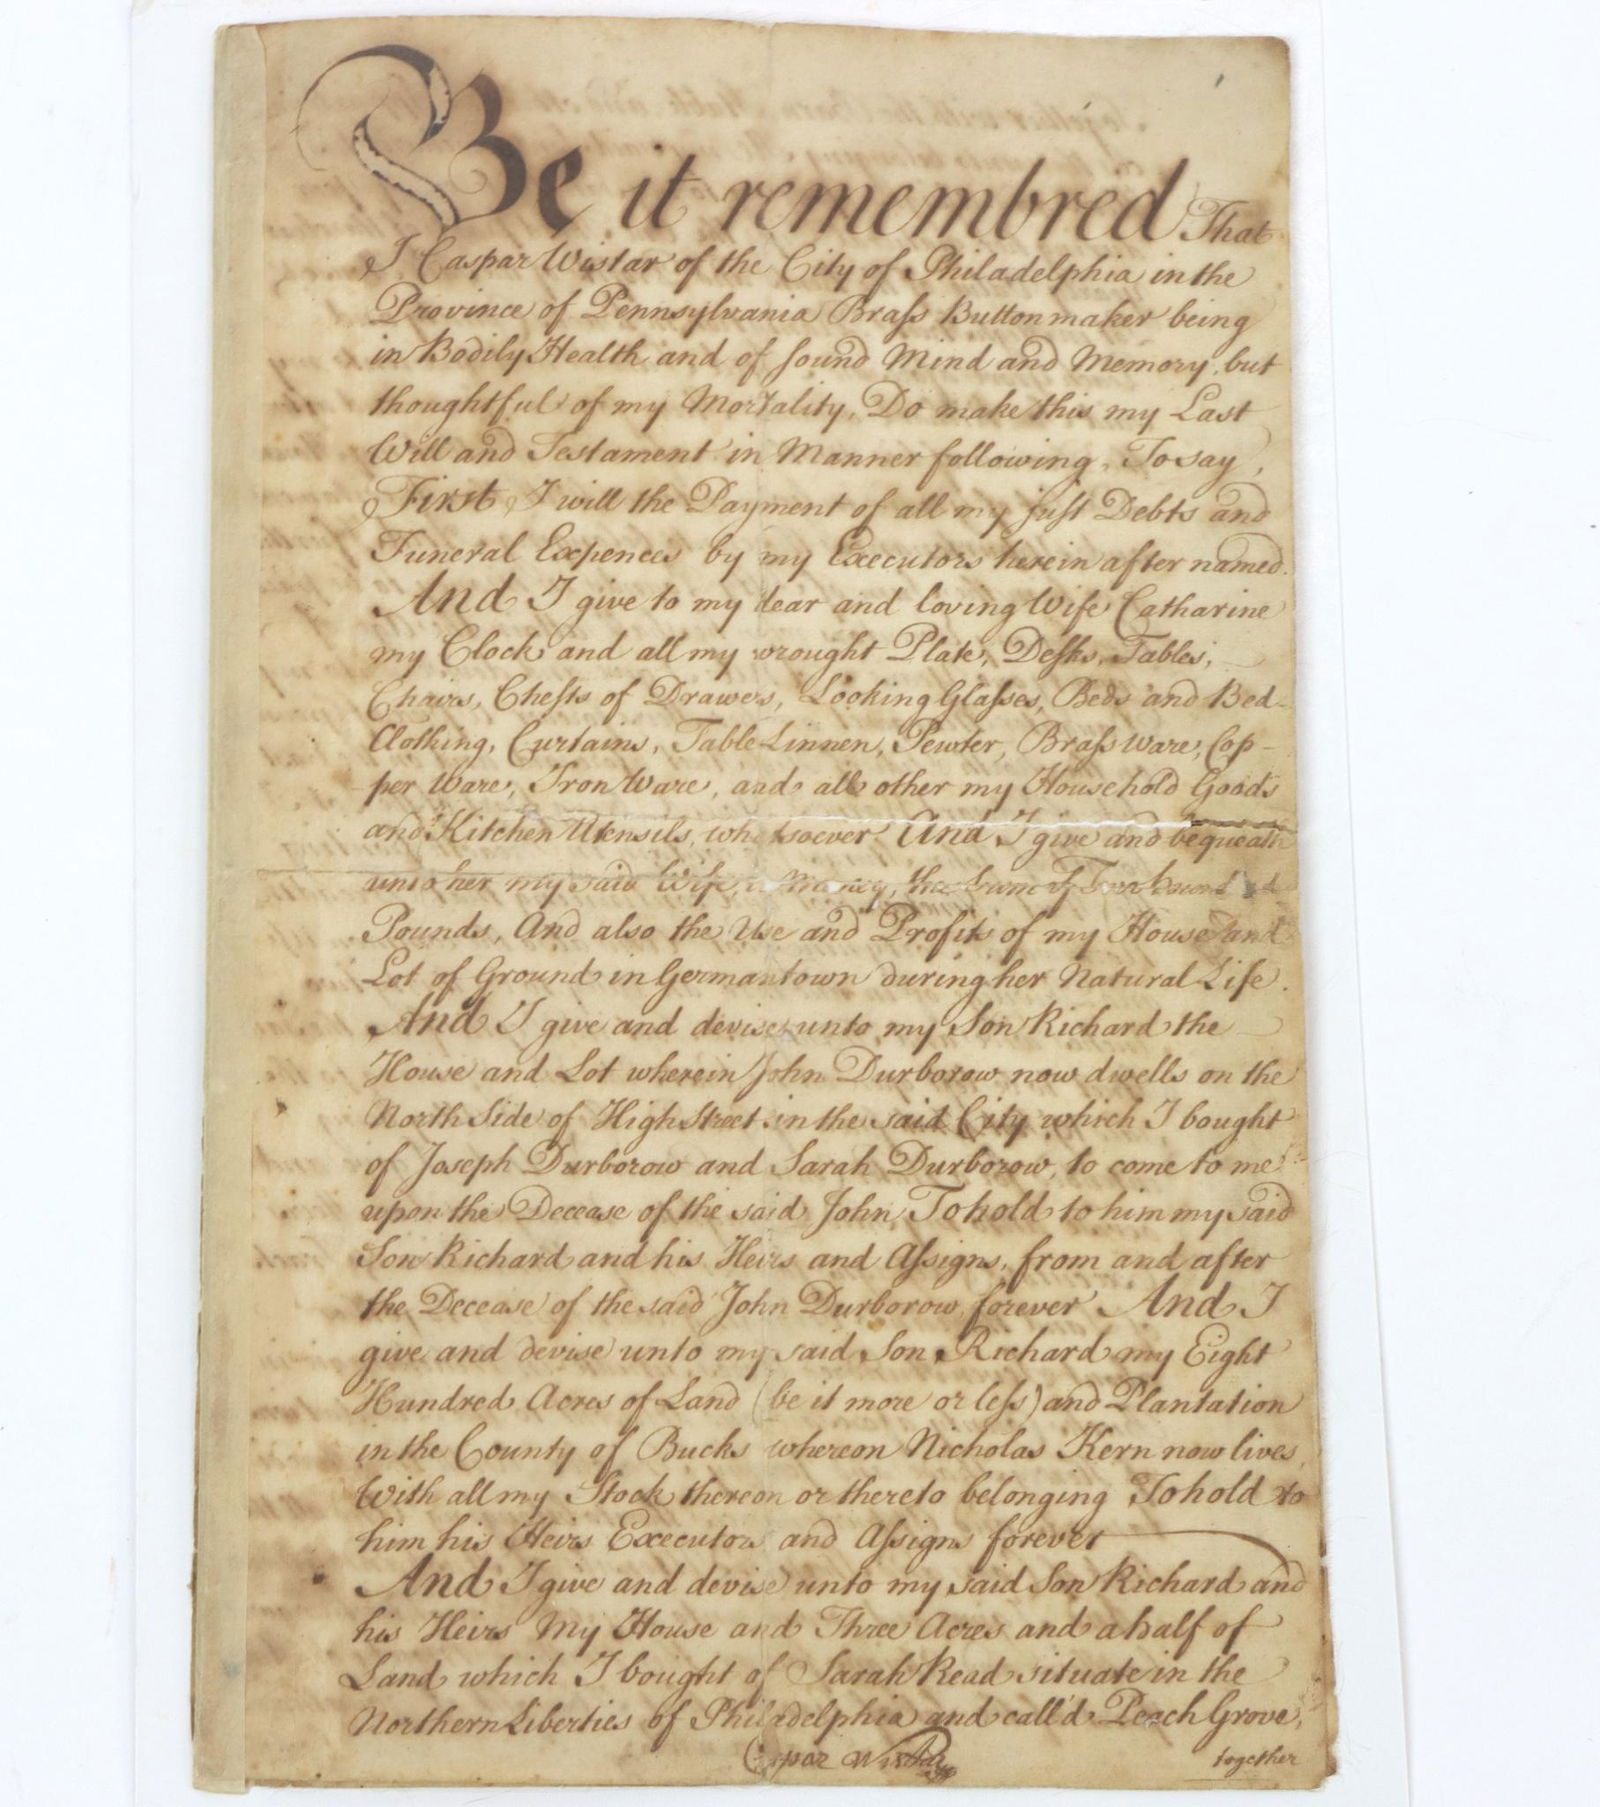 Be it remembred That
I Caspar Wistar of the City of Philadelphia in the
Province of Pennsylvania Braſs Button maker being
in Bodily Health and of ſound Mind and Memory, but
thoughtful of my Mortality, Do make this my Last
Will and Testament in Manner following, To say,
First I will the Payment of all my juſt Debts and
Funeral Expences by my Executors herein after named.
And I give to my dear and loving Wife Catharine
my Clock and all my wrought Plate, Deſks, Tables,
Chairs, Cheſts of Drawers, Looking Glaſses, Beds and Bed-
Clothing, Curtains, Table Linnen, Pewter, Braſs Ware, Cop-
per Ware, Iron Ware, and all other my Household Goods
and Kitchen Utensils, whatsoever And I give and bequeath
unto her my said Wife, in Money, the Sum of
Pounds, And also the Use and Profits of my House and
Lot of Ground in Germantown during her Natural Life.
And I give and devise unto my Son Richard the
House and Lot wherein John Durborow now dwells on the
North Side of High Street in the said City which I bought
of Joseph Durborow and Sarah Durborow, to come to me
upon the Decease of the said John, To hold to him my said
Son Richard and his Heirs and Aſsigns, from and after
the Decease of the said John Durborow forever And I
give and devise unto my said Son Richard my Eight
Hundred Acres of Land (be it more or leſs) and Plantation
in the County of Bucks whereon Nicholas Kern now lives,
With all my Stock thereon or thereto belonging To hold to
him his Heirs Executors and Aſsigns forever
And I give and devise unto my said Son Richard and
his Heirs My House and Three Acres and a half of
Land which I bought of Sarah Read situate in the
Northern Liberties of Philadelphia and call'd Peach Grove,
Caspar Wistar
together